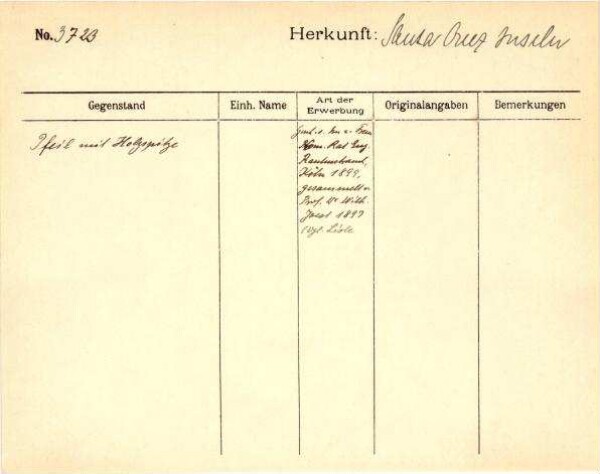 No. 3723 Herkunft: Santa Cruz Inseln
Gegenstand Einh. Name Art der Erwerbung Originalangaben Bemerkungen
Pfeil mit Holzspitze
Kom. Rat Eug.
Rautenstrauch,
Köln 1899,
gesammelt v.
Prof. Dr Wilh.
Joest 1897
(vgl. Liste